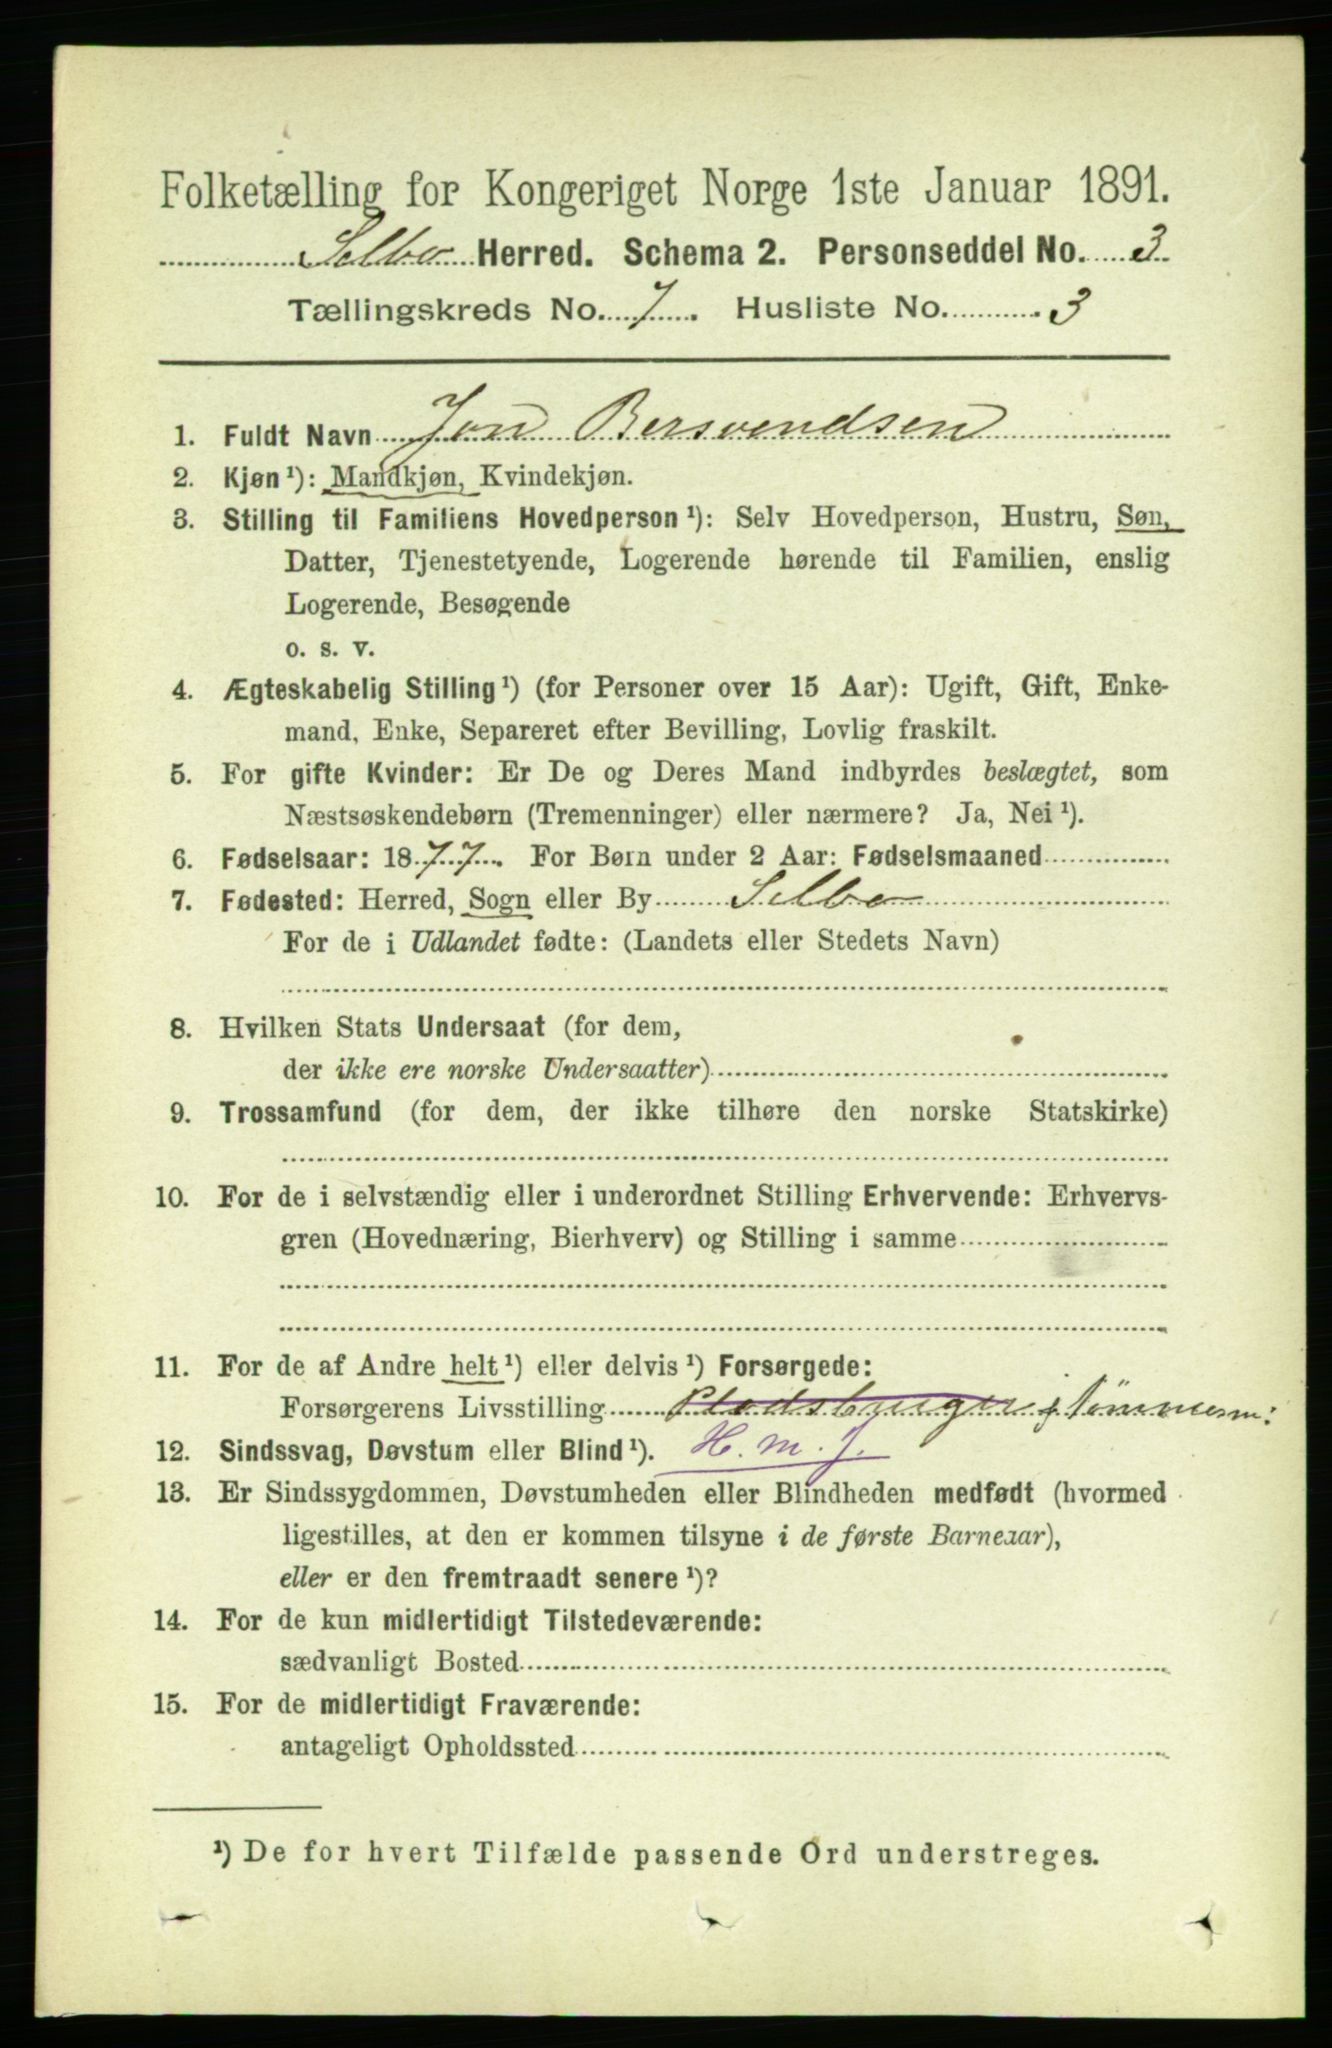 Folketælling for Kongeriget Norge 1ste Januar 1891.
Selbo Herred. Schema 2. Personseddel No. 3
Tællingskreds No. 7. Husliste No. 3
1. Fuldt Navn Jon Bersvendsen
2. Kjøn ¹): Mandkjøn, Kvindekjøn.
3. Stilling til Familiens Hovedperson ¹): Selv Hovedperson, Hustru, Søn,
Datter, Tjenestetyende, Logerende hørende til Familien, enslig
Logerende, Besøgende
o. s. v.
4. Ægteskabelig Stilling ¹) (for Personer over 15 Aar): Ugift, Gift, Enke-
mand, Enke, Separeret efter Bevilling, Lovlig fraskilt.
5. For gifte Kvinder: Er De og Deres Mand indbyrdes beslægtet, som
Næstsøskendebørn (Tremenninger) eller nærmere? Ja, Nei ¹).
6. Fødselsaar: 1877. For Børn under 2 Aar: Fødselsmaaned
7. Fødested: Herred, Sogn eller By Selbo
For de i Udlandet fødte: (Landets eller Stedets Navn)
8. Hvilken Stats Undersaat (for dem,
der ikke ere norske Undersaatter)
9. Trossamfund (for dem, der ikke tilhøre den norske Statskirke)
10. For de i selvstændig eller i underordnet Stilling Erhvervende: Erhvervs-
gren (Hovednæring, Bierhverv) og Stilling i samme
11. For de af Andre helt ¹) eller delvis ¹) Forsørgede:
Forsørgerens Livsstilling Pladsbruger
12. Sindssvag, Døvstum eller Blind ¹). H. m. J.
13. Er Sindssygdommen, Døvstumheden eller Blindheden medfødt (hvormed
ligestilles, at den er kommen tilsyne i de første Barneaar),
eller er den fremtraadt senere ¹)?
14. For de kun midlertidigt Tilstedeværende:
sædvanligt Bosted
15. For de midlertidigt Fraværende:
antageligt Opholdssted
¹) De for hvert Tilfælde passende Ord understreges.